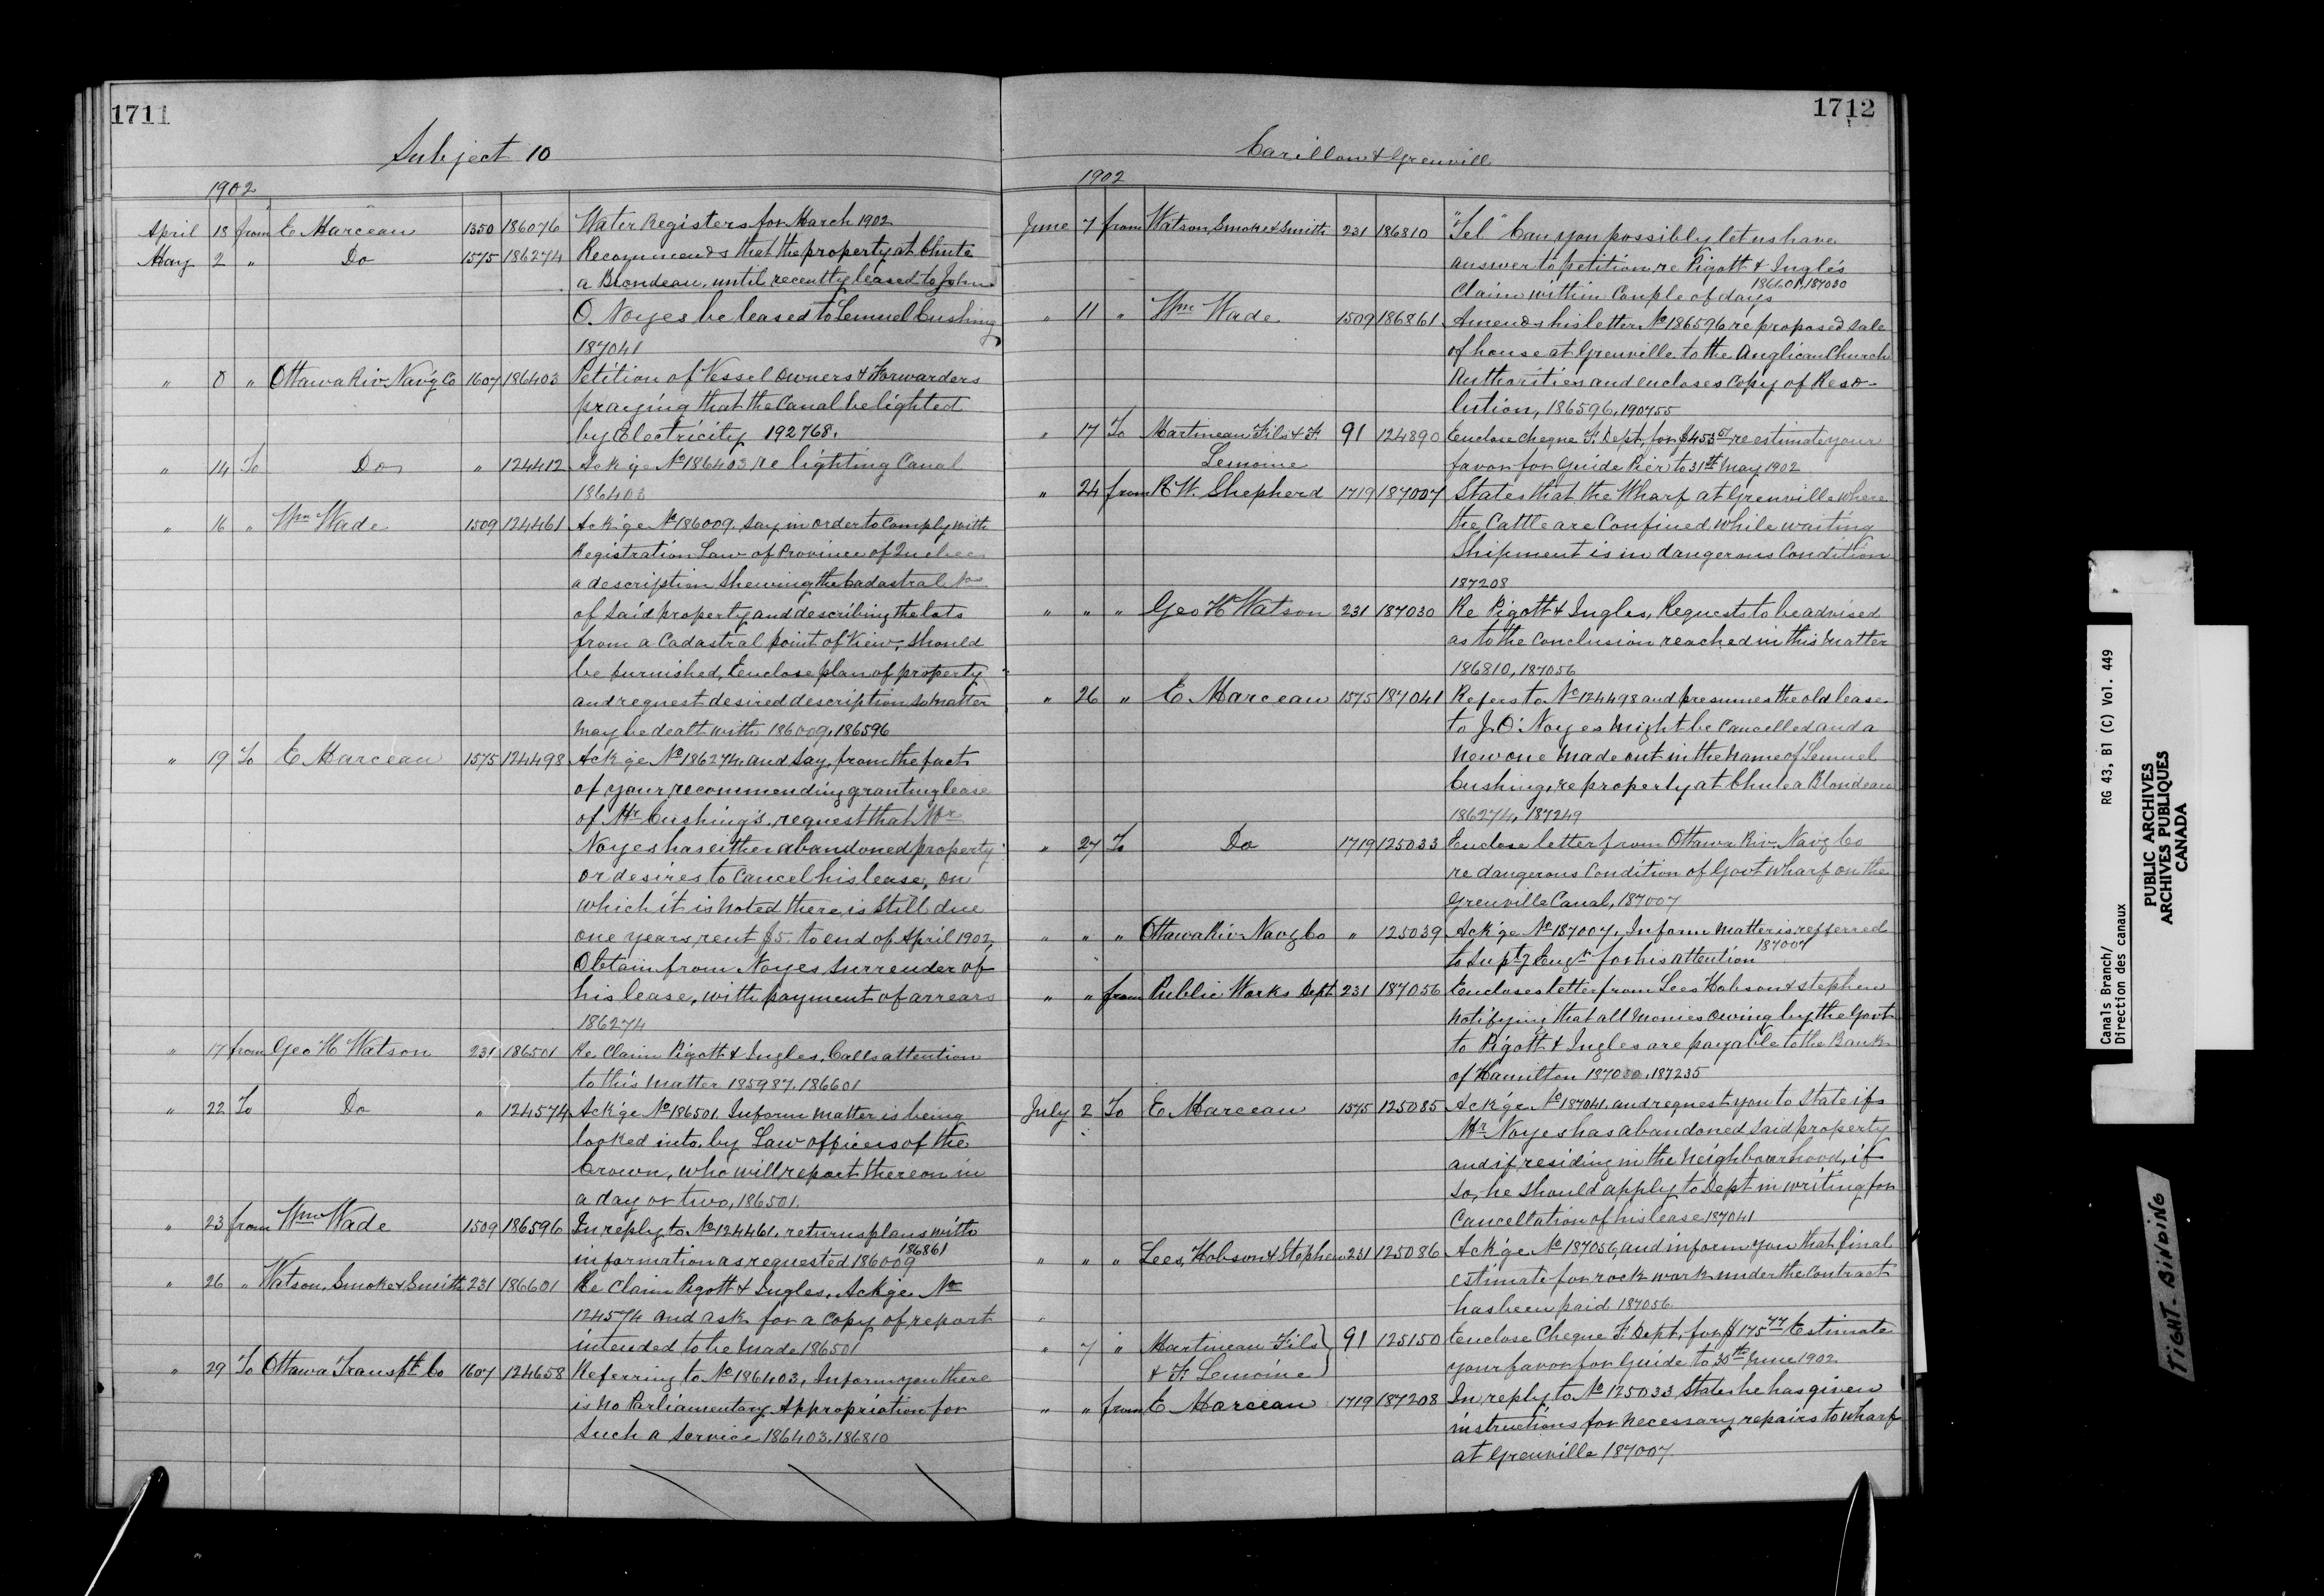 1711
Subject 10
1902
April 18 from E Marceau 1350 186076 Water Registers for March 1902
May 2 " Do 1575 186274 Recommends that the property at Chute
a Blondeau, until recently leased to John
O. Noyes be leased to Lemuel Cushing
187041
" 8 " Ottawa Riv. Nav'g Co 1607 186403 Petition of Vessel Owners & Forwarders
praying that the Canal be lighted
by Electricity 192768.
" 14 To Do " 124412 Ack'ge No 186403 re lighting Canal
186403
" 16 " Wm Wade 1509 124461 Ack'ge No 186009. Say in order to comply with
Registration Law of Province of Quebec
a description shewing the Cadastral Nos
of said property and describing the lots
from a Cadastral point of View, should
be furnished, Enclose plan of property
and request desired description so matter
may be dealt with 186009, 186596
" 19 To E Marceau 1575 124498 Ack'ge No 186274, and say, from the fact
of your recommending granting lease
of Mr Cushing's, request that Mr
Noyes has either abandoned property
or desires to cancel his lease, on
which it is noted there is still due
one years, rent $5. to end of April 1902,
Obtain from Noyes surrender of
his lease, with payment of arrears
186274
" 17 from Geo H Watson 231 186501 Re Claim Pigott & Ingles, Calls attention
to this matter 185987, 186601
" 22 To Do " 124574 Ack'ge No 186501. Inform matter is being
looked into, by Law officers of the
Crown, who will report thereon in
a day or two, 186501.
" 23 from Wm Wade 1509 186596 In reply to No 124461, returns plans with
information as requested 186009 186861
" 26 " Watson, Smoke & Smith 231 186601 Re Claim Pigott & Ingles, Ackge No
124574 and ask for a copy of report
intended to be made 186501
" 29 To Ottawa Transpt Co 1607 124658 Referring to No 186403, Inform you there
is no Parliamentary Appropriation for
such a service 186403, 186810
1712
Carillon & Grenvill
1902
June 7 from Watson, Smoke & Smith 231 186810 "Tel" Can you possibly let us have
answer to petition, re Pigott & Ingles
Claim within Couple of days 186601, 187030
" 11 " Wm Wade 1509 186861 Amends his letter No 186596 re proposed sale
of house at Grenville to the Anglican Church
Authorities and encloses copy of Reso-
lution, 186596, 190755
" 17 To Martineau Fils & F. 91 124890 Enclose cheque F. Dept, for $453 re estimate your
Lemoine favor for Guide Pier to 31st May 1902
" 24 from R W. Shepherd 1719 187007 States that the Wharf at Grenville where
the Cattle are Confined while waiting
Shipment is in dangerous Condition
187208
" " " Geo H Watson 231 187030 Re Pigott & Ingles, Requests to be advised
as to the Conclusion reached in this matter
186810, 187056
" 26 " E Marceau 1575 187041 Refers to No 124498 and presumes the old lease
to J. O. Noyes might be cancelled and a
new one made out in the name of Lemuel
Cushing, re property at Chute a Blondeau
186274, 187249
" 27 To Do 1719 125033 Enclose letter from Ottawa Riv. Nav'g Co
re dangerous Condition of Govt Wharf on the
Grenville Canal, 187007
" " " Ottawa Riv. Nav'g Co " 125039 Ack'ge No 187007, Inform matter is referred
to Supt'g Eng'r for his attention 187007
" " from Public Works Dept 231 187056 Encloses letter from Lees Hobson & Stephen
notifying that all monies owing by the Govt
to Pigott & Ingles are payable to the Bank
of Hamilton 187030, 187235
July 2 To E Marceau 1575 125085 Ack'ge No 187041, and request you to state if
Mr Noyes has abandoned said property
and if residing in the neighbourhood, if
so, he should apply to Dept in writing for
Cancellation of his lease 187041
" " " Lees, Hobson & Stephen 231 125086 Ack'ge No 187056, and inform you that final
estimate for rock work under the Contract
has been paid 187056.
" 7 " Martineau Fils 91 125150 Enclose Cheque F. Dept, for $175 77 Estimate
& F. Lemoine your favor for Guide to 30th June 1902
" " from E Marceau 1719 187208 In reply to No 125033, States he has given
instructions for necessary repairs to wharf
at Grenville 187007.
Canals Branch/ RG 43, B1 (C) Vol. 449
Direction des canaux
PUBLIC ARCHIVES
ARCHIVES PUBLIQUES
CANADA
TIGHT BINDING